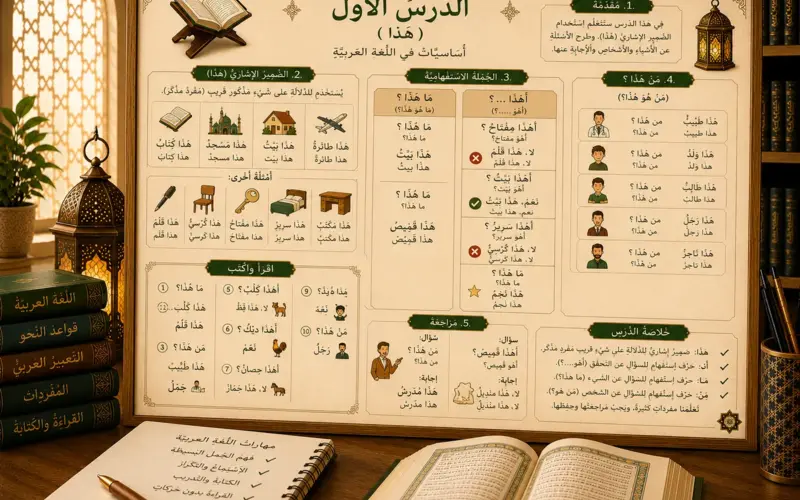 الدرس الأول
( هٰذا )
أساسيّات في اللغة العربيّة
1. مقدّمة
في هذا الدرس ستتعلّم استخدام
الضمير الإشاريّ (هٰذا)، وطرح الأسئلة
عن الأشياء والأشخاص والإجابة عنها.
2. الضمير الإشاريّ (هٰذا)
يُستخدم للدّلالة على شيء مذكور قريب (مفرد مذكّر).
هٰذا كتابٌ
هذا كتاب
هٰذا مسجدٌ
هذا مسجد
هٰذا بيتٌ
هذا بيت
هٰذا طائرةٌ
هذا طائرة
أمثلة أخرى:
هٰذا قلمٌ
هذا قلم
هٰذا كرسيٌّ
هذا كرسي
هٰذا مفتاحٌ
هذا مفتاح
هٰذا سريرٌ
هذا سرير
هٰذا مكتبٌ
هذا مكتب
3. الجملة الاستفهاميّة
ما هٰذا ؟
(ما هو هٰذا؟)
ما هٰذا ؟
ما هذا؟
هٰذا بيتٌ
هذا بيت
ما هٰذا ؟
ما هذا؟
هٰذا قميصٌ
هذا قميص
أهٰذا ... ؟
(أهو.....؟)
أهٰذا مفتاحٌ ؟
أهو مفتاح؟
لا، هٰذا قلمٌ
لا، هذا قلم
أهٰذا بيتٌ ؟
أهو بيت؟
نعم، هٰذا بيتٌ
نعم، هذا بيت
أهٰذا سريرٌ ؟
أهو سرير؟
لا، هٰذا كرسيٌّ
لا، هذا كرسي
ما هٰذا ؟
ما هذا؟
هٰذا نجمٌ
هذا نجم
4. مَنْ هٰذا ؟
(مَنْ هو هٰذا؟)
من هذا ؟
من هذا ؟
هٰذا طبيبٌ
هذا طبيب
من هذا ؟
من هذا ؟
هٰذا ولدٌ
هذا ولد
من هذا ؟
من هذا ؟
هٰذا طالبٌ
هذا طالب
من هذا ؟
من هذا ؟
هٰذا رجلٌ
هذا رجل
من هذا ؟
من هذا ؟
هٰذا تاجرٌ
هذا تاجر
اقرأ واكتب
① ما هٰذا؟
هٰذا كلب..
هٰذا قلمٌ
③ من هٰذا ؟
هٰذا طبيبٌ
جملٌ
⑤ أهٰذا كلب؟
لا، هٰذا قطٌ
⑥ أهٰذا ديكٌ ؟
نعم
⑦ أهٰذا حصانٌ ؟
لا، هٰذا حمارٌ
⑨
نعمة
⑩ من هٰذا ؟
رجل
5. مراجعة
سؤال:
من هٰذا ؟
من هذا ؟
إجابة:
هٰذا مدرسٌ
هذا مدرس
سؤال:
أهٰذا قميصٌ ؟
أهو قميص؟
إجابة:
لا، هٰذا منديلٌ
لا، هذا منديل
خلاصة الدّرس
هٰذا: ضمير إشاريّ للدّلالة على شيء قريب مفرد مذكّر.
أ: حرف استفهام للسؤال عن التحقق (أهو....؟).
ما: حرف استفهام للسؤال عن الشيء (ما هٰذا؟).
مَنْ: حرف استفهام للسؤال عن الشخص (من هو؟).
تعلّمنا مفردات كثيرة، ويجب مراجعتها وحفظها.
اللّغة العربيّة
قواعد النّحو
التعبير العربيّ
المفردات
القراءة والكتابة
مهارات اللّغة العربيّة
فهم الجمل البسيطة
الاستماع والتكرار
الكتابة والتدريب
القراءة بدون حركات